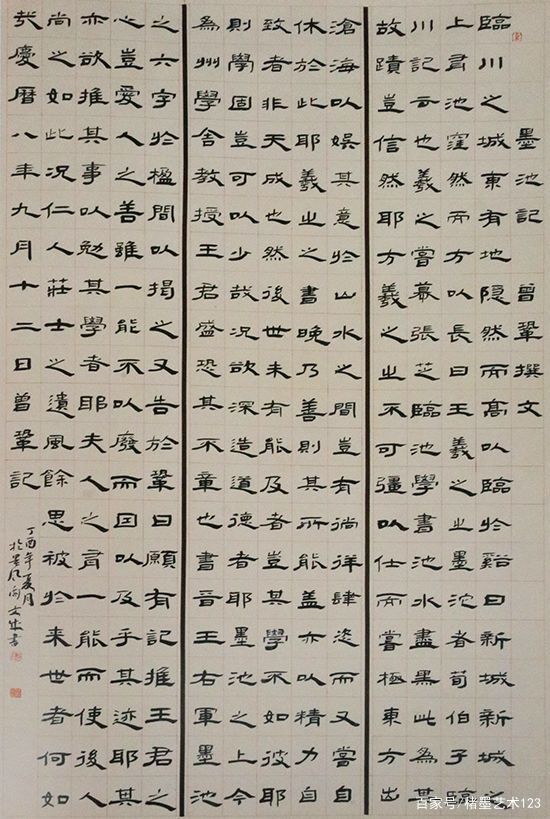 墨池記 曾鞏撰文
臨川之城東有地隱然而高以臨於谿曰新城新城之
上有池窪然而方以長曰王羲之之墨池者荀伯子臨
川記云也羲之嘗慕張芝臨池學書池水盡黑此為其
故蹟豈信然耶方羲之之不可彊以仕而嘗極東方出
滄海以娛其意於山水之間豈有徜徉肆恣而又嘗自
休於此耶羲之之書晚乃善則其所能蓋亦以精力自
致者非天成也然後世未有能及者豈其學不如彼耶
則學固豈可以少哉況欲深造道德者耶墨池之上今
為州學舍教授王君盛恐其不章也書晉王右軍墨池
之六字於楹間以揭之又告於鞏曰願有記推王君之
心豈愛人之善雖一能不以廢而因以及乎其迹耶其
亦欲推其事以勉其學者耶夫人之有一能而使後人
尚之如此況仁人莊士之遺風餘思被於來世者何如
哉慶曆八年九月十二日曾鞏記
丁酉年夏月
於 文 書
百家号/楮墨艺术123